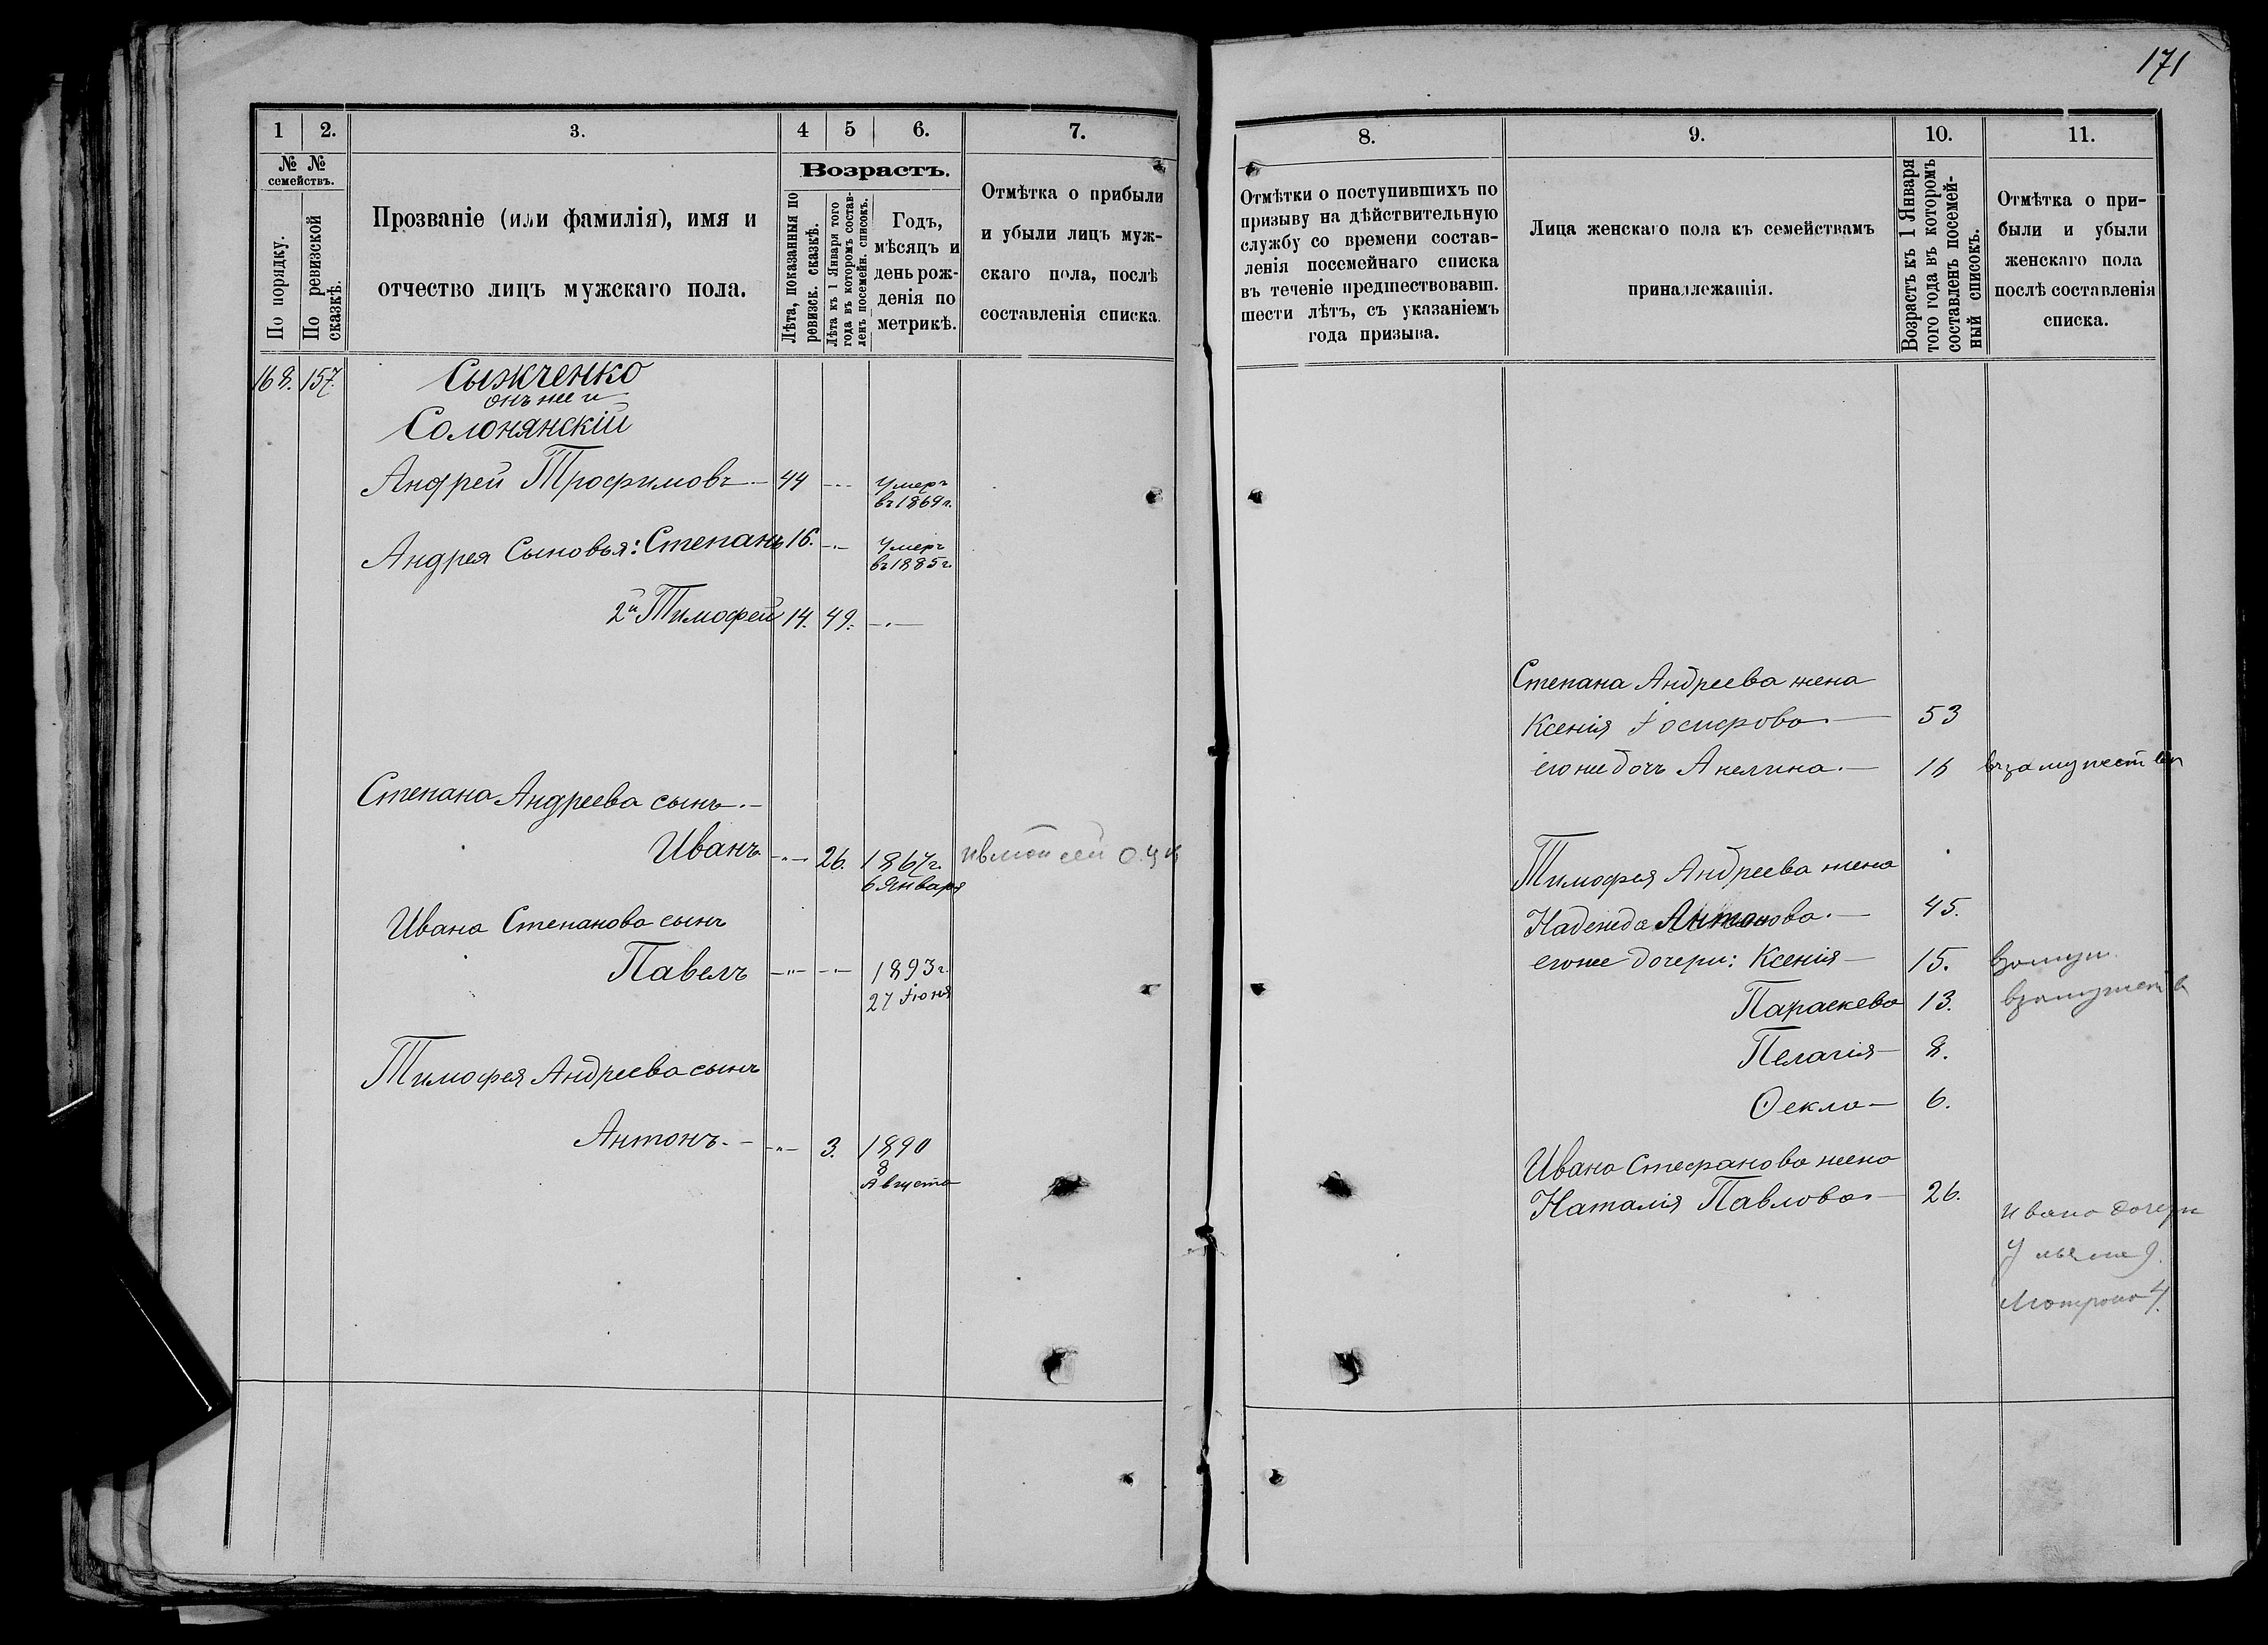 171
1
2.
3.
4
5
6.
7.
№ №
семействъ.
По порядку.
По ревизской
сказкѣ.
Прозваніе (или фамилія), имя и
отчество лицъ мужскаго пола.
Возрастъ.
Лѣта, показанныя по
ревизск. сказкѣ.
Лѣта къ 1 Января того
года въ которомъ состав-
ленъ посемейн. списокъ.
Годъ,
мѣсяцъ и
день рож-
денія по
метрикѣ.
Отмѣтка о прибыли
и убыли лицъ муж-
скаго пола, послѣ
составленія списка.
168. 157. Сыжченко
онъ же и
Солонянскій
Андрей Трофимовъ — 44 -.- Умеръ
въ 1869 г.
Андрея Сыновья: Степанъ 16. -.- Умеръ
въ 1885 г.
2й Тимофей 14. 49. -.-
Степана Андреева сынъ.—
Иванъ -„- 26. 1867 г.
6 Января
Ивана Степанова сынъ
Павелъ -„- -„- 1893 г.
27 Іюня
Тимофея Андреева сынъ
Антонъ.- -„- 3. 1890
8
Августа
8.
9.
10.
11.
Отмѣтки о поступившихъ по
призыву на дѣйствительную
службу со времени состав-
ленія посемейнаго списка
въ теченіе предшествовавш.
шести лѣтъ, съ указаніемъ
года призыва.
Лица женскаго пола къ семействамъ
принадлежащія.
Возрастъ къ 1 Января
того года въ которомъ
составленъ посемей-
ный списокъ.
Отмѣтка о при-
были и убыли
женскаго пола
послѣ составленія
списка.
Степана Андреева жена
Ксенія Іосифова.— 53
его же дочь Акелина.— 16 въ замужеств
Тимофея Андреева жена
Надежда Антонова.— 45.
его же дочери: Ксенія— 15. взамуж.
Параскева 13. взамужеств
Пелагія— 8.
Ѳекла— 6.
Ивана Стефанова жена
Наталія Павлова— 26.
Ивана дочери
Ульяна 9.
Мотрона 4.